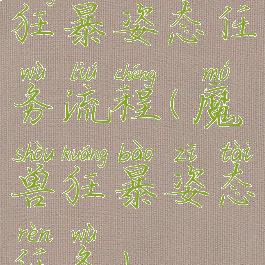 狂暴姿态任
wù liú chéng mó
务流程(魔
shòu kuáng bào zī tài
兽狂暴姿态
rèn wù
任务)